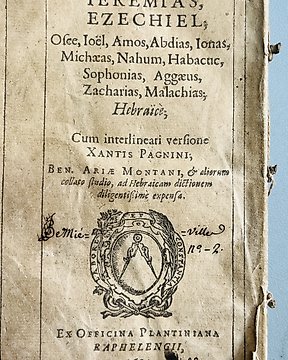 IEREMIAS,
EZECHIEL,
Osee, Ioël, Amos, Abdias, Ionas,
Michæas, Nahum, Habacuc,
Sophonias, Aggæus,
Zacharias, Malachias;
Hebraicè;
Cum interlineari versione
XANTIS PAGNINI;
BEN. ARIÆ MONTANI, & aliorum
collato studio, ad Hebraicam dictionem
diligentißimè expensa.
LABORE ET CONSTANTIA
De Mié = ville
nº - 2.
EX OFFICINA PLANTINIANA
RAPHELENGII,